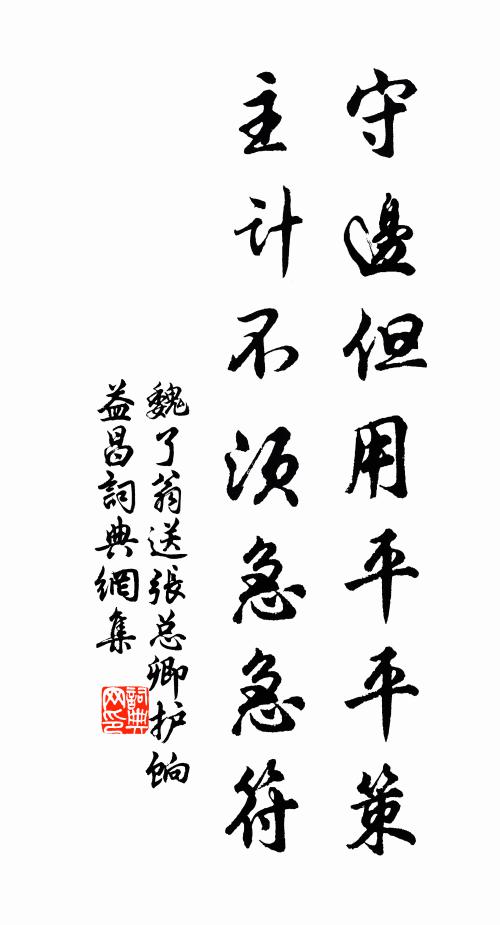 守邊但用平平策
主計不須急急符
魏了翁送張总卿护餉
益昌詞典網集
詞典网印